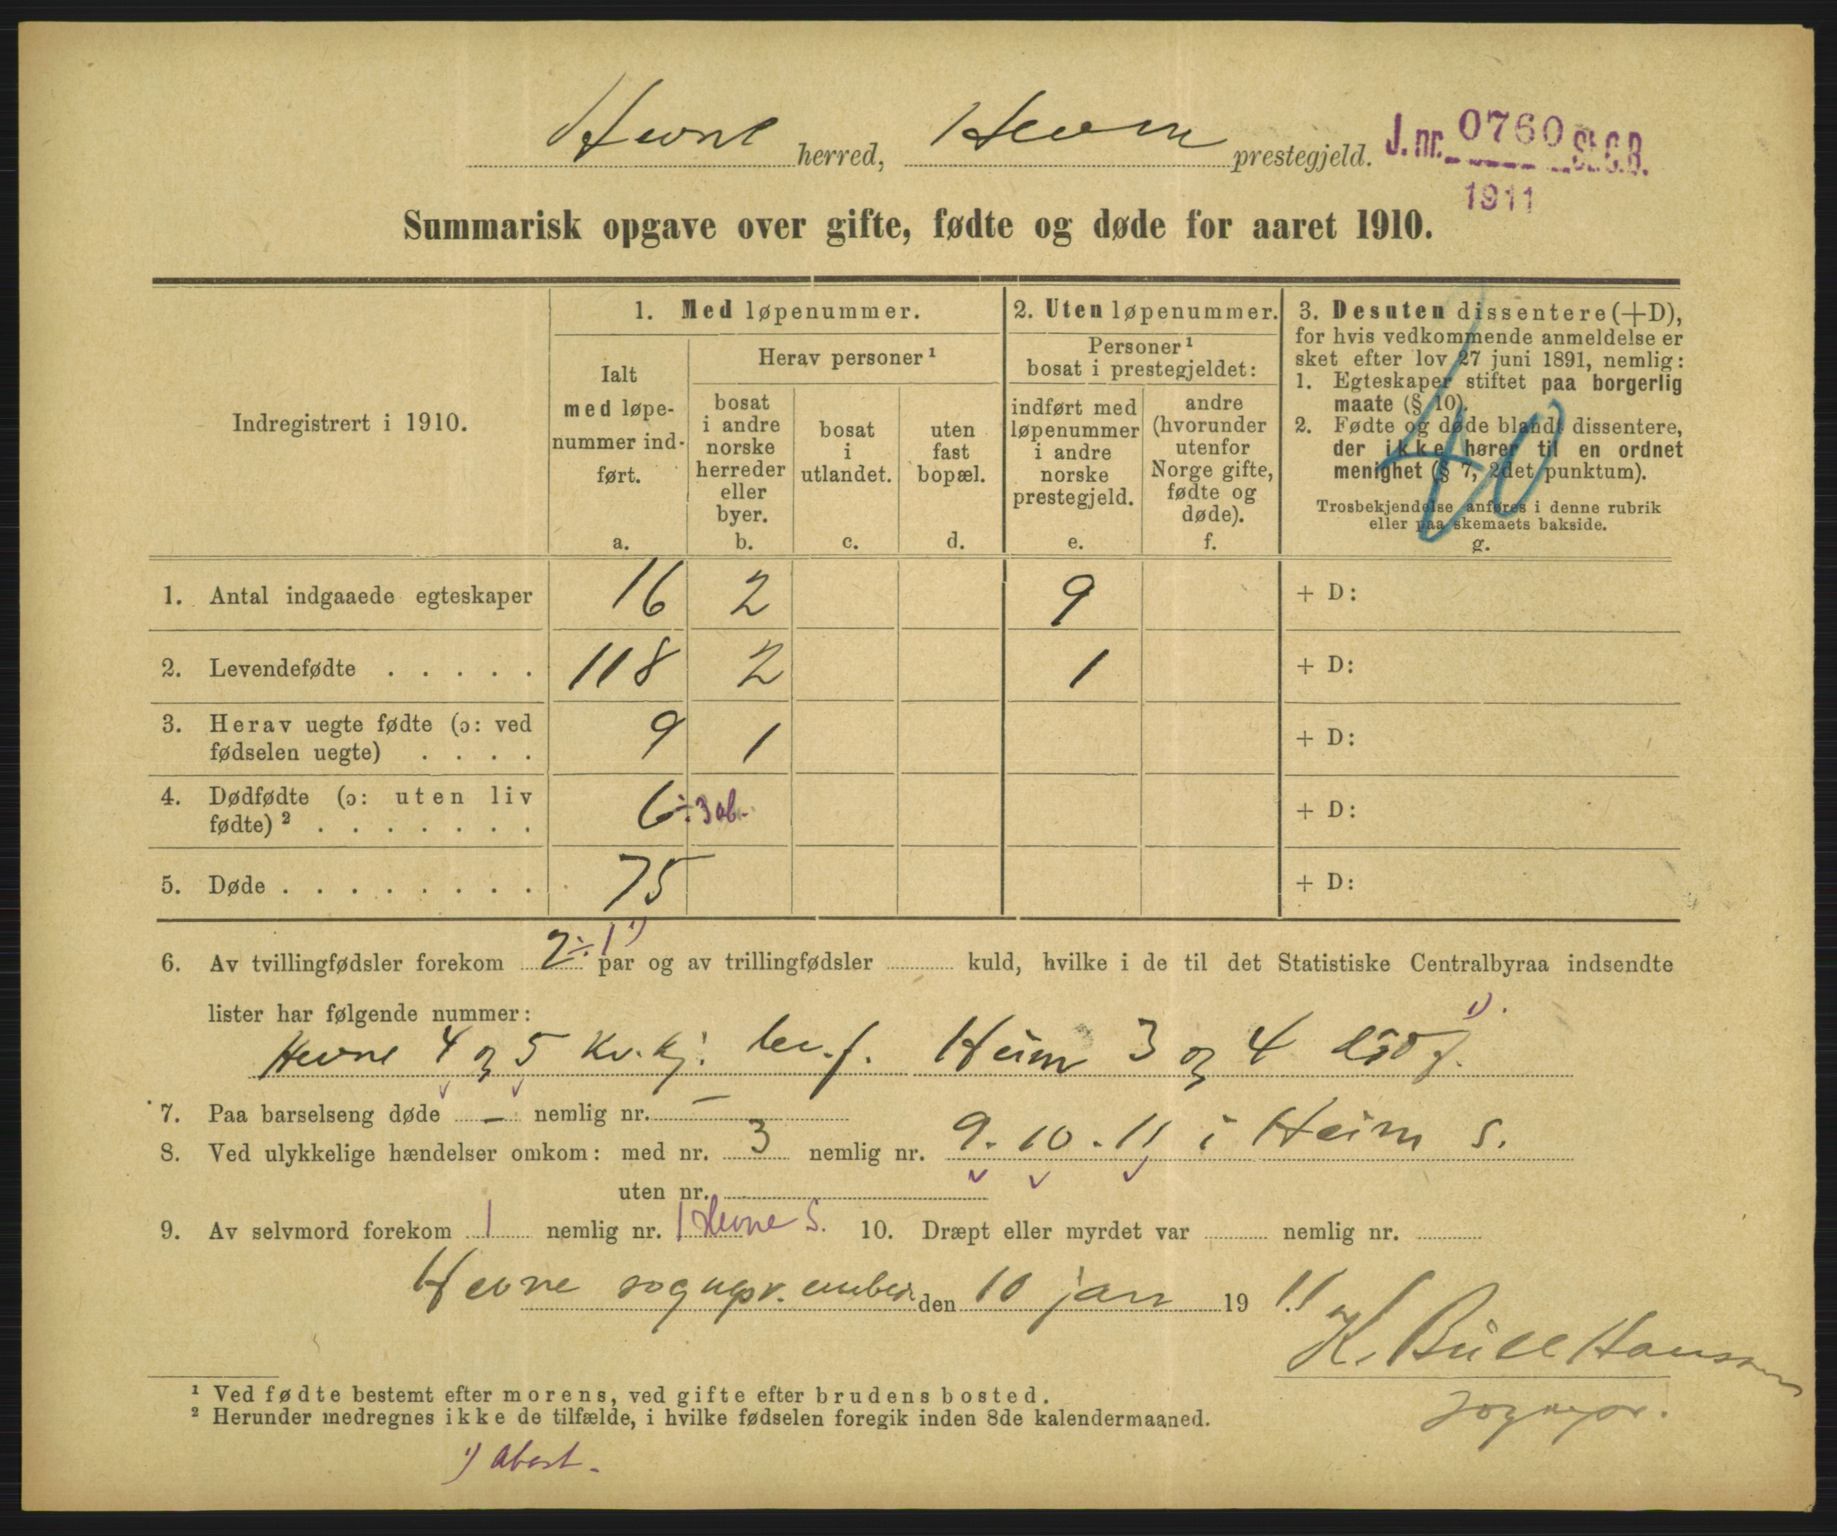 Hevne herred, Hevne prestegjeld. J. nr. 0760 St. C. B.
1911
Summarisk opgave over gifte, fødte og døde for aaret 1910.
Indregistrert i 1910.
1. Med løpenummer.
Ialt
med løpe-
nummer ind-
ført.
a.
Herav personer¹
bosat
i andre
norske
herreder
eller
byer.
b.
bosat
i
utlandet.
c.
uten
fast
bopæl.
d.
2. Uten løpenummer.
Personer¹
bosat i prestegjeldet:
indført med
løpenummer
i andre
norske
prestegjeld.
e.
andre
(hvorunder
utenfor
Norge gifte,
fødte og
døde).
f.
3. Desuten dissentere (+D),
for hvis vedkommende anmeldelse er
sket efter lov 27 juni 1891, nemlig:
1. Egteskaper stiftet paa borgerlig
maate (§ 10).
2. Fødte og døde blandt dissentere,
der ikke hører til en ordnet
menighet (§ 7, 2det punktum).
Trosbekjendelse anføres i denne rubrik
eller paa skemaets bakside.
g.
1. Antal indgaaede egteskaper 16 2 9 + D:
2. Levendefødte . . . . . 118 2 1 + D:
3. Herav uegte fødte (ɔ: ved
fødselen uegte) . . . . 9 1 + D:
4. Dødfødte (ɔ: uten liv
fødte)² . . . . . . . 6 ÷ 3 ab. + D:
5. Døde . . . . . . . . 75 + D:
6. Av tvillingfødsler forekom 2 ÷ 1 ¹) par og av trillingfødsler kuld, hvilke i de til det Statistiske Centralbyraa indsendte
lister har følgende nummer:
Hevne 4 og 5 Kv.kj. lev. f. Heim 3 og 4 død f. ¹).
7. Paa barselseng døde – nemlig nr. –
8. Ved ulykkelige hændelser omkom: med nr. 3 nemlig nr. 9. 10. 11 i Heim s.
uten nr.
9. Av selvmord forekom 1 nemlig nr. 1 Hevne S. 10. Dræpt eller myrdet var nemlig nr.
Hevne sognepr.embede den 10 jan 19 11
K. Bull Hansen
sognepr.
¹ Ved fødte bestemt efter morens, ved gifte efter brudens bosted.
² Herunder medregnes ikke de tilfælde, i hvilke fødselen foregik inden 8de kalendermaaned.
¹) Abort.